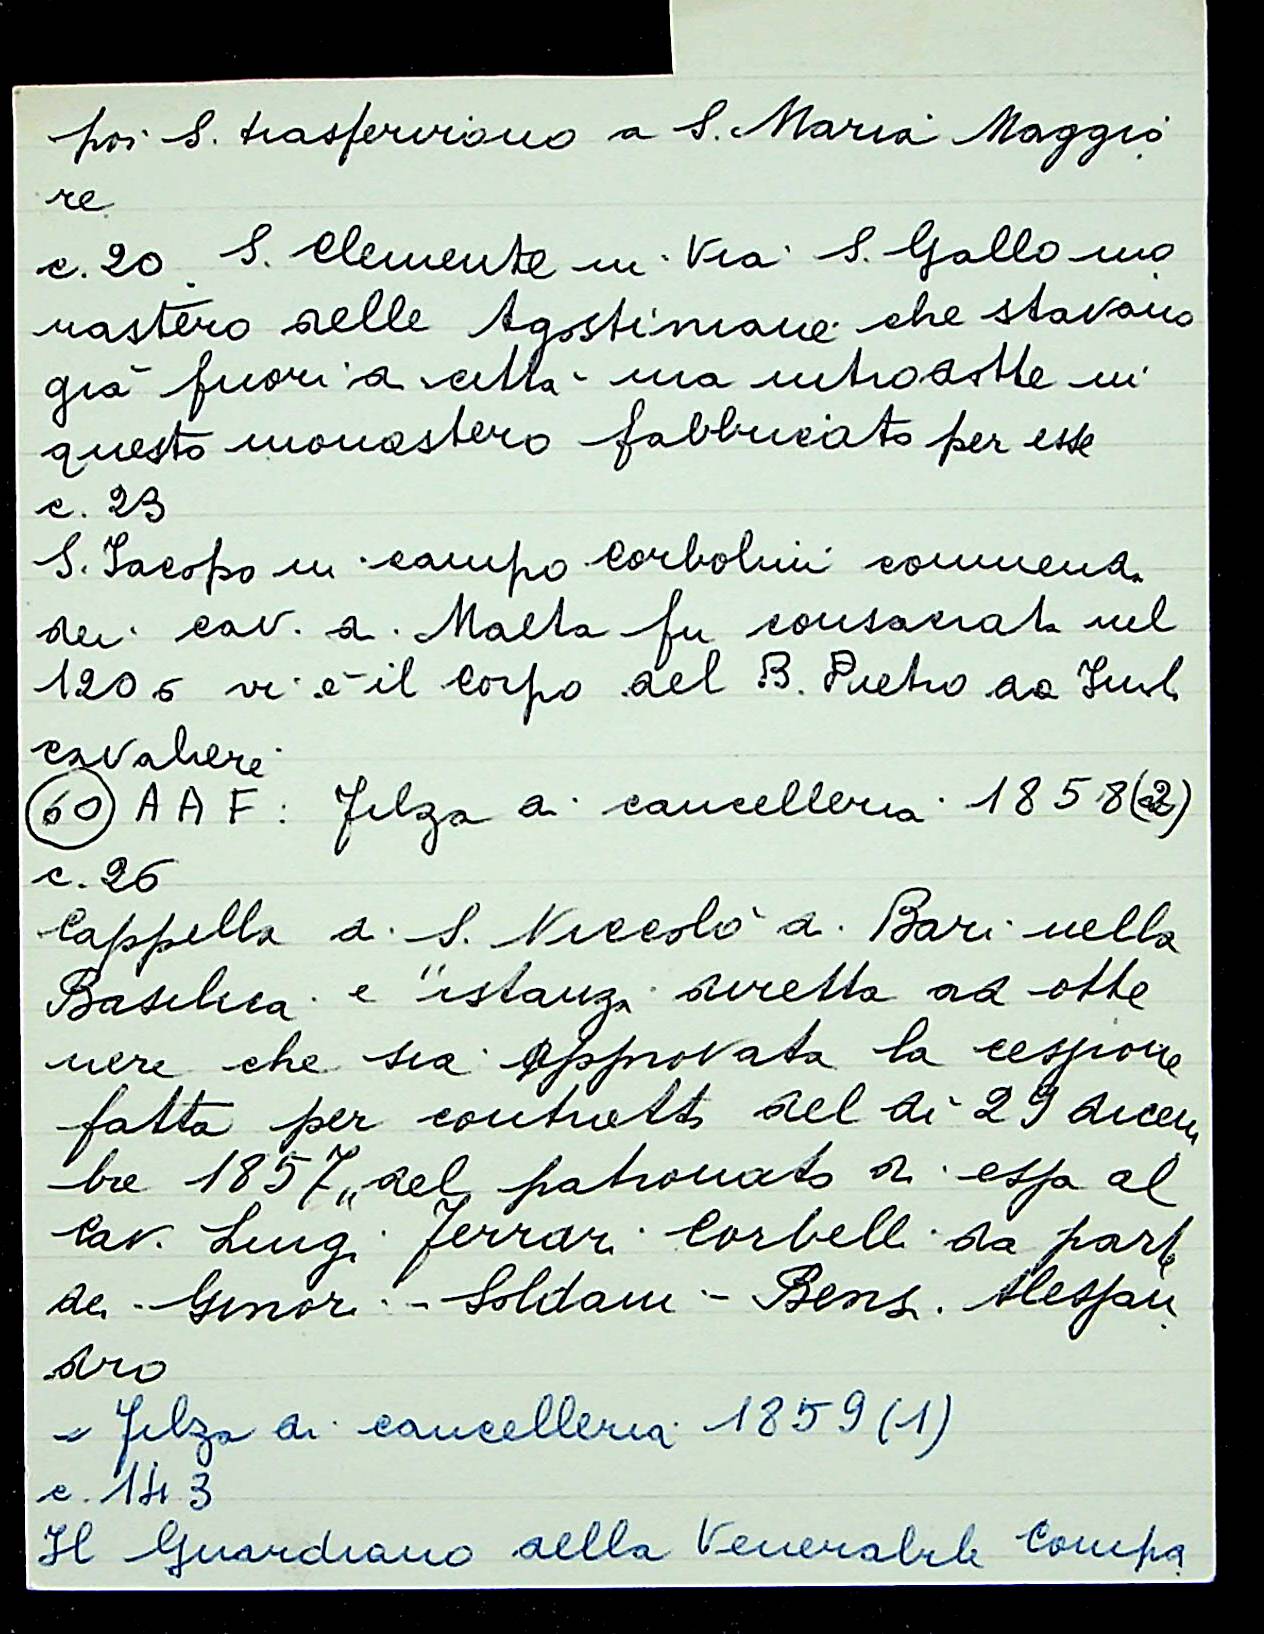 poi S. trasferirono a S. Maria Maggio
re
c. 20. S. Clemente in Via S. Gallo mo
nastero delle Agostiniane che stavano
già fuori di città ma introdotte in
questo monastero fabbricato per esse
c. 23
S. Iacopo in campo Corbolini commenda
dei cav. di Malta fu consacrata nel
1206 vi è il corpo del B. Pietro da Imola
cavaliere
(60) A A F: Filza di cancelleria 1858 (2)
c. 26
Cappella di S. Niccolò di Bari nella
Basilica e "istanza diretta ad otte
nere che sia approvata la cessione
fatta per contratto del dì 29 dicem
bre 1857" del patronato di essa al
Cav. Luigi Ferrari Corbelli da parte
dei Ginori - Soldani - Benzi. Alessan
dro
- Filza di cancelleria 1859 (1)
c. 143
Il Guardiano della Venerabile Compa